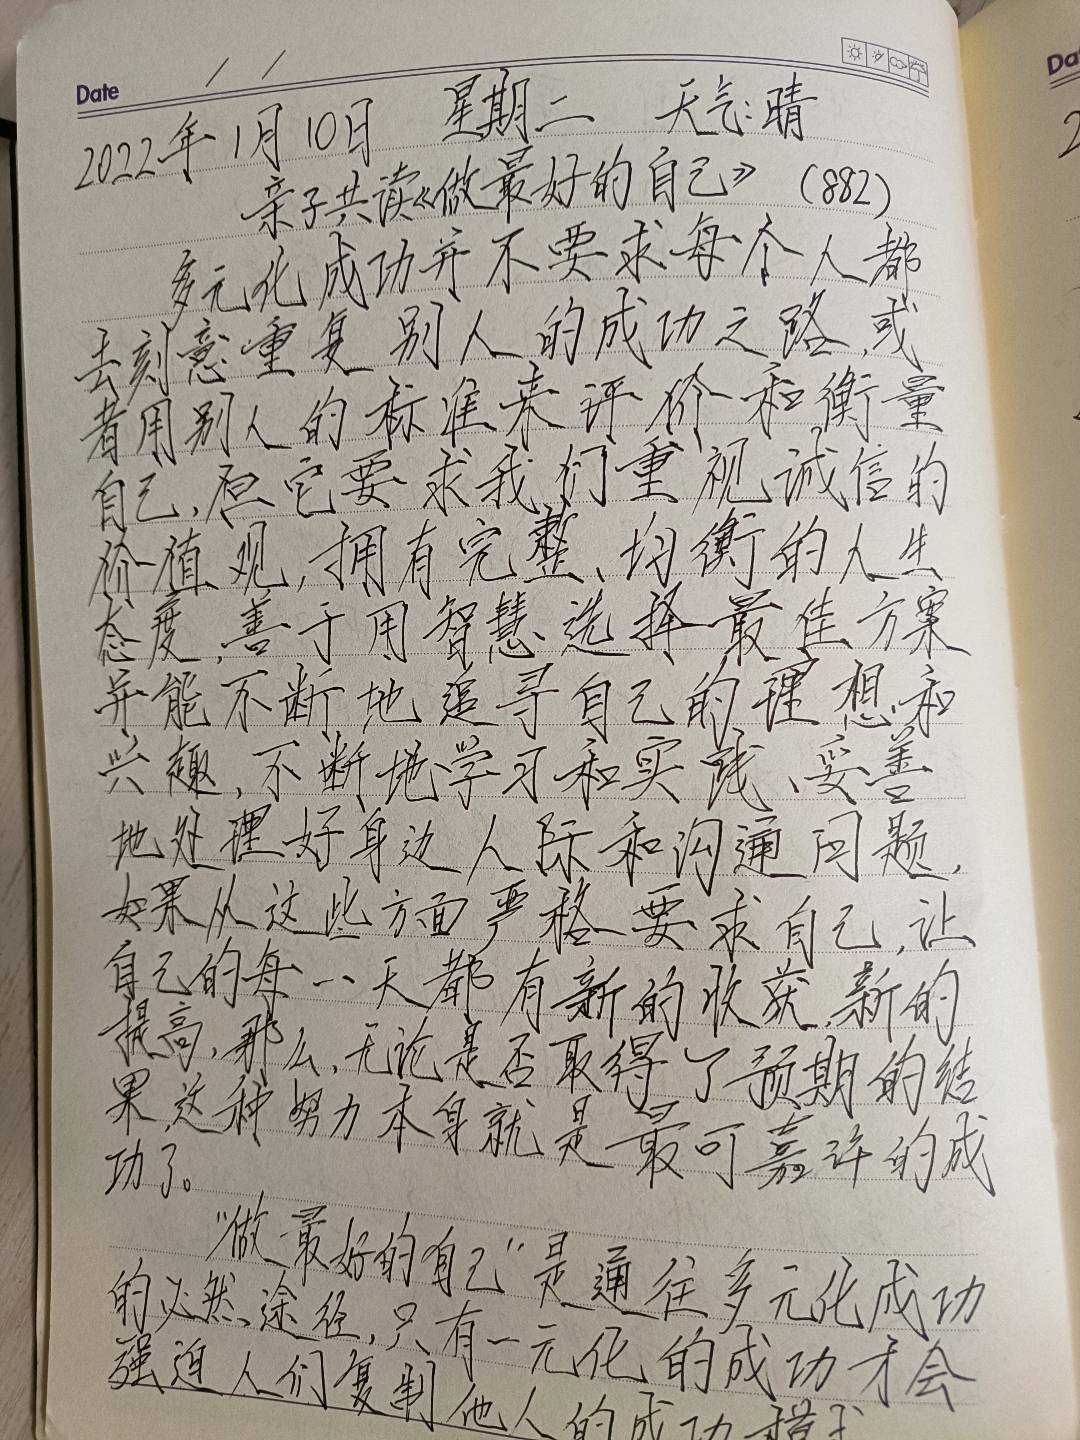 Date / /
2022年1月10日 星期二 天气:晴
亲子共读《做最好的自己》 (882)
多元化成功并不要求每个人都
去刻意重复别人的成功之路,或
者用别人的标准来评价和衡量
自己,但它要求我们重视诚信的
价值观,拥有完整、均衡的人生
态度,善于用智慧选择最佳方案
并能不断地追寻自己的理想和
兴趣,不断地学习和实践、妥善
地处理好身边人际和沟通问题,
如果从这些方面严格要求自己,让
自己的每一天都有新的收获,新的
提高,那么,无论是否取得了预期的结
果,这种努力本身就是最可嘉许的成
功了。
"做最好的自己"是通往多元化成功
的必然途径,只有一元化的成功才会
强迫人们复制他人的成功模式
Da
2